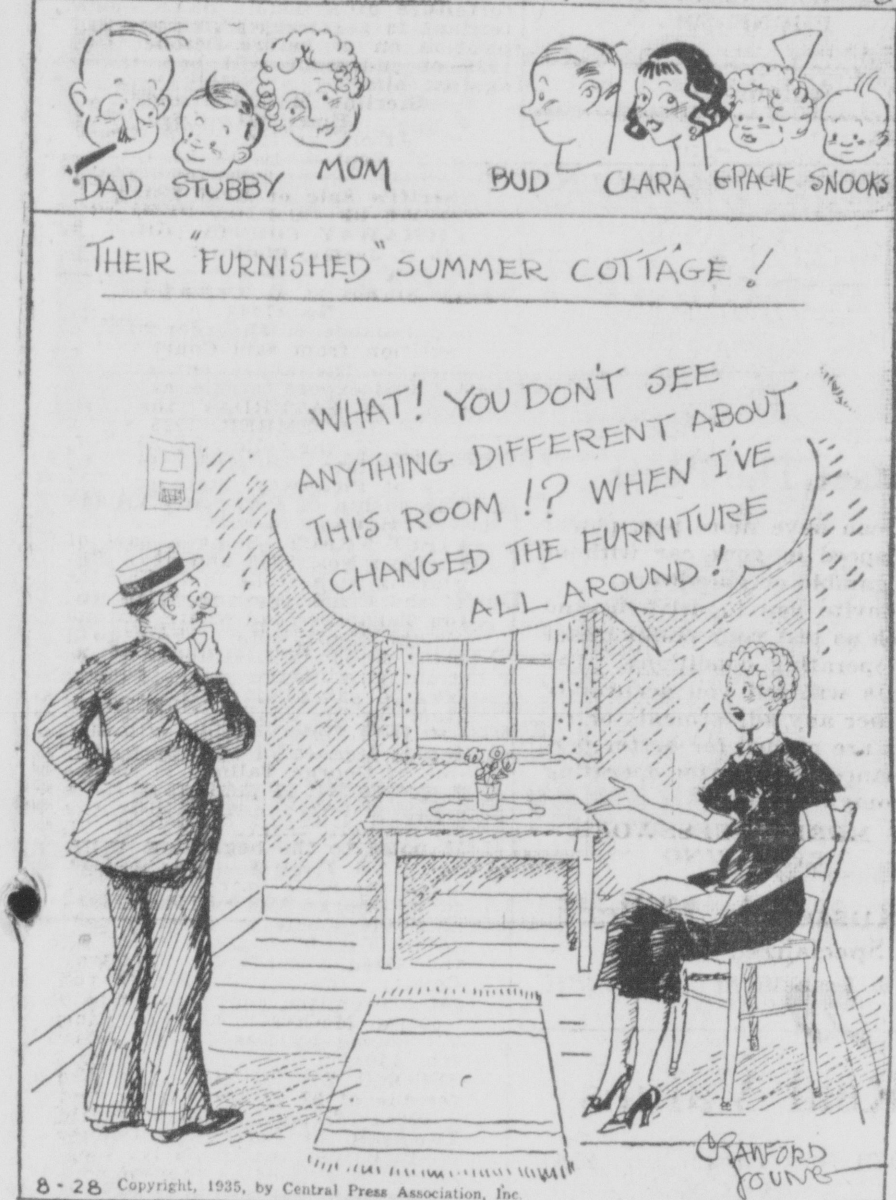 DAD STUBBY MOM BUD CLARA GRACIE SNOOKS
THEIR "FURNISHED" SUMMER COTTAGE!
WHAT! YOU DON'T SEE
ANYTHING DIFFERENT ABOUT
THIS ROOM!? WHEN I'VE
CHANGED THE FURNITURE
ALL AROUND!
CRAWFORD
YOUNG
8-28 Copyright, 1935, by Central Press Association, Inc.